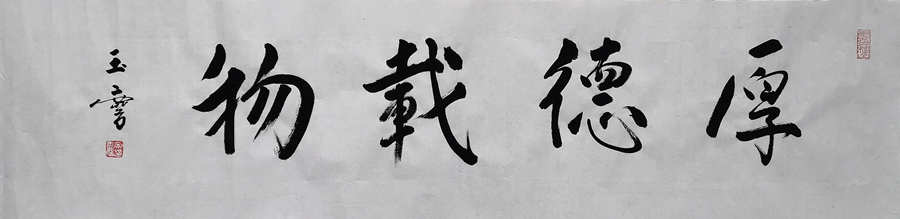 厚德載物
玉膏